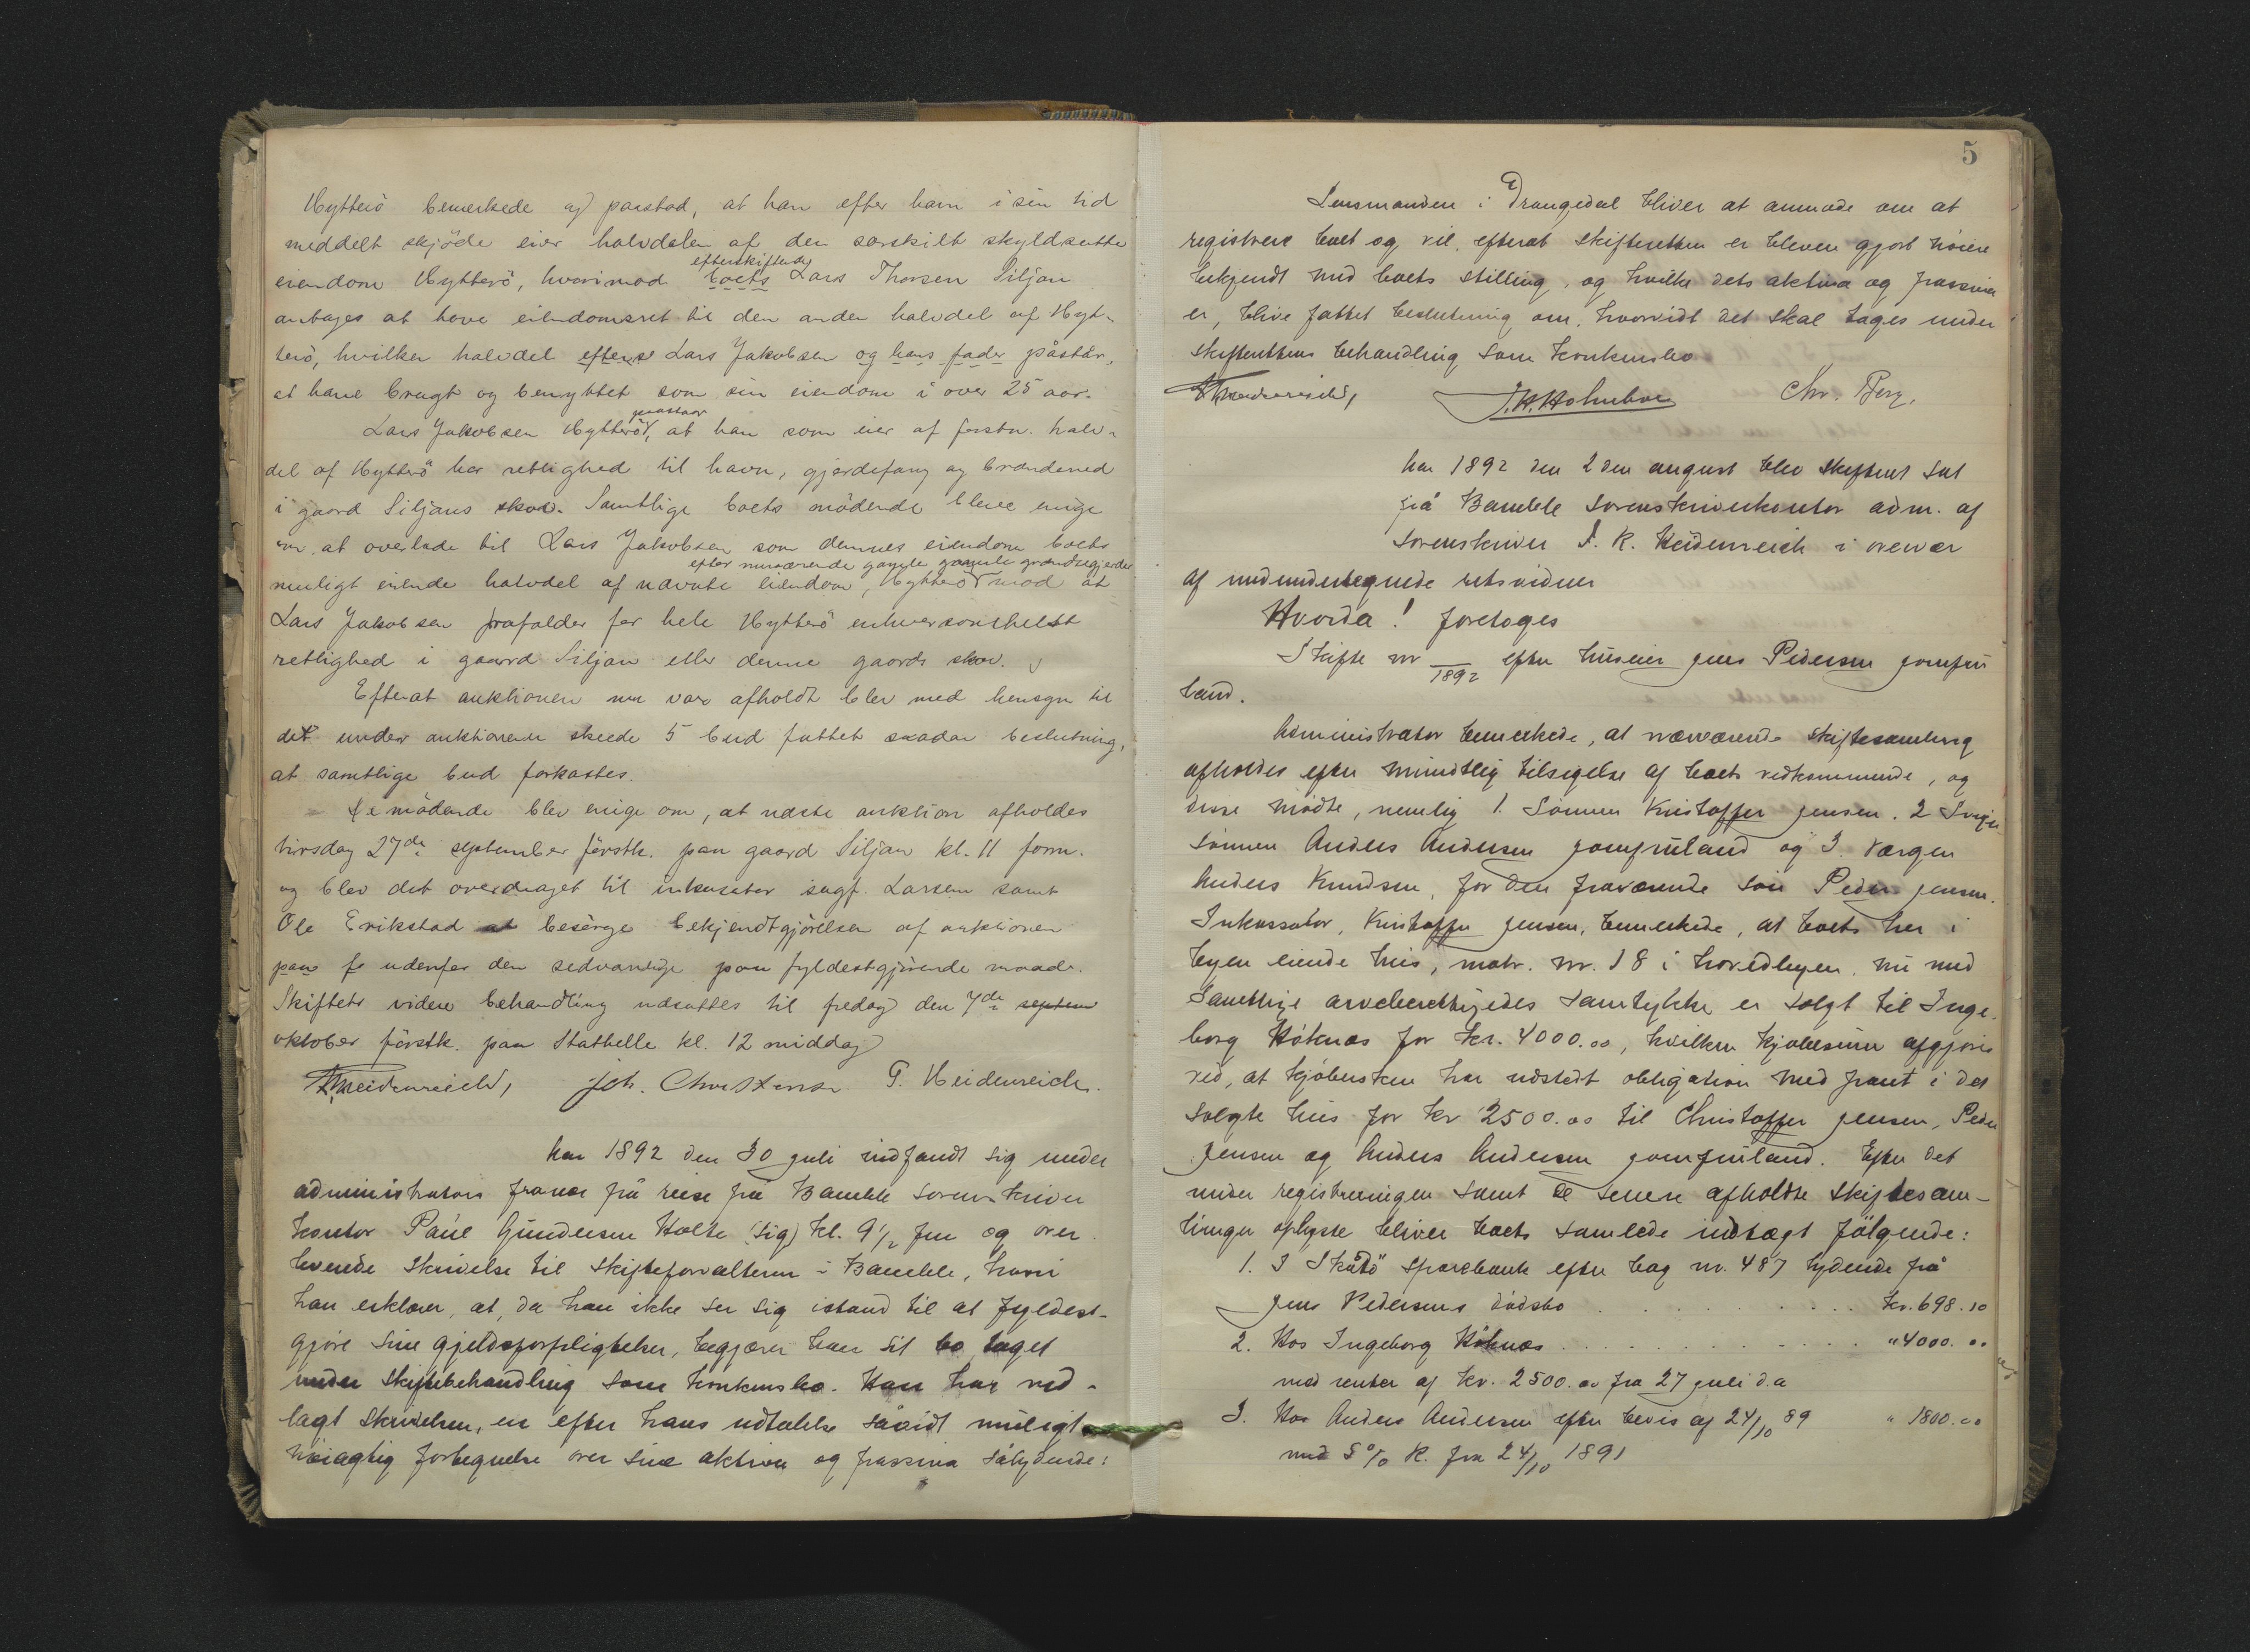 Hytterö bemerkede og paastod, at han efter ham i sin tid
meddelt skjöde eier halvdelen af den særskilt skyldsatte
efterskiftede
eiendom Hytterö, hvorimod boets Lars Thorsen Siljan
antages at have eiendomsret til den anden halvdel af Hyt-
terö, hvilken halvdel Lars Jakobsen og hans fader påstår,
at have brugt og benyttet som sin eiendom i over 25 aar.
paastaar
Lars Jakobsen Hytterö, at han som eier af førstn. halv-
del af Hytterö har rettighed til havn, gjærdefang og brændeved
i gaard Siljans skov. Samtlige boets mödende bleve enige
om at overlade til Lars Jakobsen som dennes eiendom boets
efter nuværende gamle gamle grændsegjerder
muligt eiende halvdel af nævnte eiendom, Hytterö mod at
Lars Jakobsen frafalder for hele Hytterö enhversomhelst
rettighed i gaard Siljan eller denne gaards skov.
Efterat auktionen nu var afholdt blev med hensyn til
det under auktionen skeede 5 bud fattet saadan beslutning,
at samtlige bud forkastes.
De mödende blev enige om, at næste auktion afholdes
tirsdag 27de september förstk. paa gaard Siljan kl. 11 form.
og blev det overdraget til inkassator sagf. Larsen samt
Ole Erikstad at besörge bekjendtgjörelsen af auktionen
paa udenfor den sedvanlige paa fyldestgjörende maade.
Skiftets videre behandling udsattes til fredag den 7de septem
oktober förstk. paa Stathelle kl. 12 middag
Heidenreich, Joh. Christensen G. Heidenreich.
Aar 1892 den 30 juli indfandt sig under
administrators fravær på reise på Bamble sorenskriver
kontor Paul Gundersen Holte (sig) kl. 9½ fm og over
leverede skrivelse til skifteforvalteren i Bamble, hvori
han erklærer, at, da han ikke ser sig istand til at fyldest-
gjöre sine gjeldsforpligtelser, begjærer han sit bo taget
under skiftebehandling som konkursbo. Han har ved-
lagt skrivelsen, en efter hans udtalelse såvidt muligt
nöiagtig fortegnelse over sine aktiva og passiva sålydende:
5
Lensmanden i Drangedal bliver at anmode om at
registrere boet og vil, efterat skifteretten er bleven gjort nöiere
bekjendt med boets stilling, og hvilke dets aktiva og passiva
er, blive fattet beslutning om, hvorvidt det skal tages under
skifterettens behandling som konkursbo
Heidenreich, J.H. Holmboe Chr. Berg.
Aar 1892 den 2den august blev skifteret sat
på Bamble Sorenskriverkontor adm. af
sorenskriver S. K. Heidenreich i overvær
af medundertegnede retsvidner
Hvorda! foretoges
Skifte nr — 1892 efter huseier Jens Pedersen Jomfru
land.
Administrator bemerkede, at nærværende skiftesamling
afholdes efter mundtlig tilsigelse af boets vedkommende, og
disse mödte, nemlig 1. Sönnen Kristoffer Jensen. 2 Sviger
sönnen Anders Andersen Jomfruland og 3. Værgen
Anders Knudsen, for den fraværende sön Peder Jensen.
Inkassator, Kristoffer Jensen, bemerkede, at boets her i
byen eiende hus, matr. nr. 18 i hovedbyen nu med
samtlige arveberettigedes samtykke er solgt til Inge-
borg Höknæs for kr. 4000.00, hvilken kjöbesum afgjöres
ved, at kjöbersken har udstedt obligation med pant i det
solgte hus for kr 2500.00 til Christoffer Jensen, Peder
Jensen og Anders Andersen Jomfruland. Efter det
under registreringen samt de senere afholdte skiftesam-
linger oplyste bliver boets samlede indtægt fölgende:
1. I Skåtö sparebank efter bog nr. 487 lydende på
Jens Pedersens dödsbo . . . . . kr. 698.10
2. Hos Ingeborg Höknæs . . . . . " 4000.00
med renter af kr. 2500.00 fra 27 juli d.a
3. Hos Anders Andersen efter bevis af 24/10 89 " 1800.00
med 5% R. fra 24/10 1891